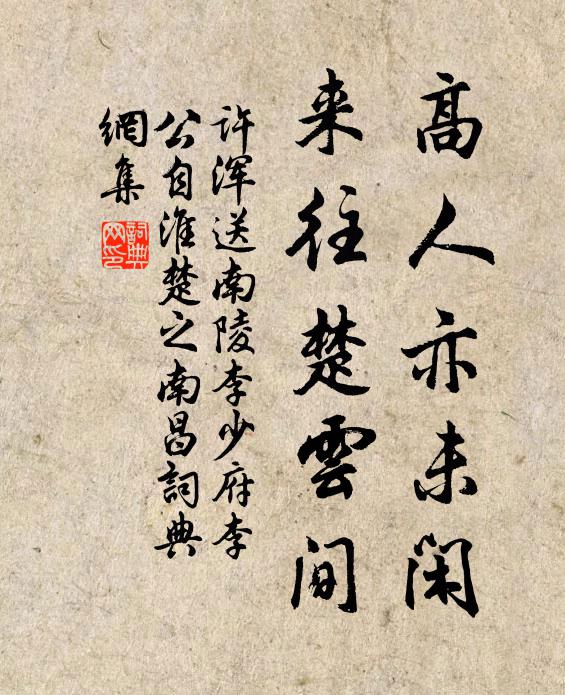 高人亦未閑
来往楚雲间
许浑送南陵李少府李
公自淮楚之南昌詞典
網集
詞典
网印